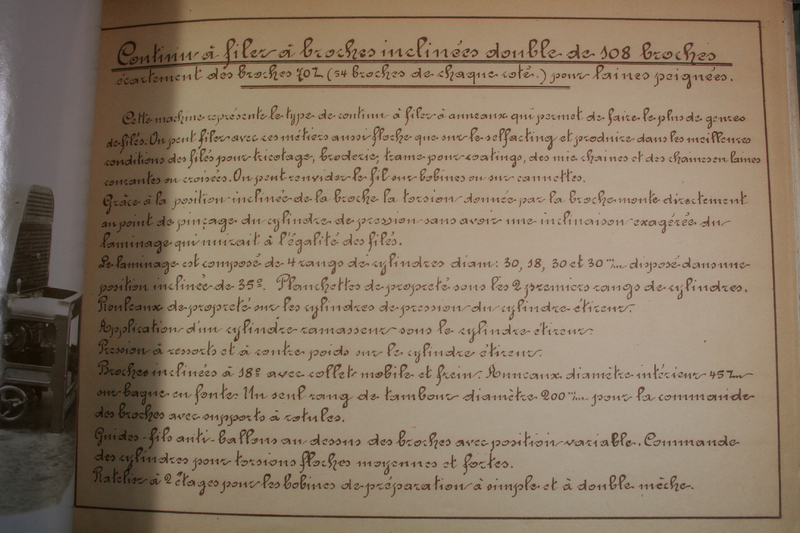 Continu à filer à broches inclinées double de 108 broches
écartement des broches 70% (54 broches de chaque coté.) pour laines peignées.
Cette machine représente le type de continu à filer à anneaux qui permet de faire le plus de genres
de filés. On peut filer avec ces métiers aussi floche que sur le selfacting et produire dans les meilleures
conditions des filés pour tricotage, broderie, trame pour coatings, des mie chaines et des chaines en laines
courantes ou croisées. On peut renvider le fil sur bobines ou sur cannettes.
Grâce à la position inclinée de la broche la torsion donnée par la broche monte directement
au point de pinçage du cylindre de pression sans avoir une inclinaison exagérée du
laminage qui nuirait à l'égalité des filés.
Le laminage est composé de 4 rangs de cylindres diam: 30, 18, 30 et 30 m/m disposé dans une
position inclinée de 35º. Planchettes de propreté sous les 2 premiers rangs de cylindres.
Rouleaux de propreté sur les cylindres de pression du cylindre étireur.
Application d'un cylindre ramasseur sous le cylindre étireur.
Pression à ressorts et à contre poids sur le cylindre étireur.
Broches inclinées à 18º avec collet mobile et frein. Anneaux diamètre intérieur 45 m/m
sur bague en fonte. Un seul rang de tambour diamètre 200 m/m pour la commande
des broches avec supports à rotules.
Guides-fils anti-ballons au dessus des broches avec position variable. Commande
des cylindres pour torsions floches moyennes et fortes.
Ratelier à 2 étages pour les bobines de préparation à simple et à double mèche.